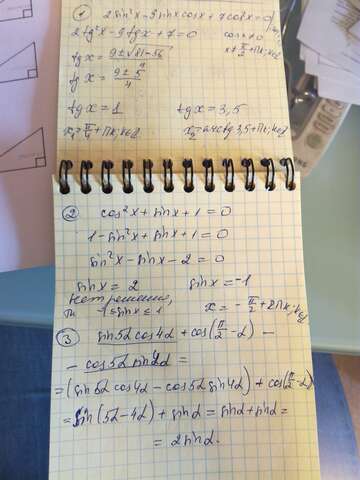 1
2 sin²x - 9 sinx cosx + 7 cos²x = 0
2 tg²x - 9 tgx + 7 = 0 cosx ≠ 0
x ≠ π/2 + πk; k∈Z
tgx = (9 ± √81 - 56)/4
tgx = (9 ± 5)/4
tgx = 1 tgx = 3,5
x₁ = π/4 + πk; k∈Z x₂ = arctg 3,5 + πk; k∈Z
2 cos²x + sinx + 1 = 0
1 - sin²x + sinx + 1 = 0
sin²x - sinx - 2 = 0
sinx = 2 sinx = -1
нет решения,
т.к. -1 ≤ sinx ≤ 1 x = -π/2 + 2πk; k∈Z
3 sin5α cos4α + cos(π/2 - α) -
- cos5α sin4α =
= (sin5α cos4α - cos5α sin4α) + cos(π/2 - α)
= sin(5α - 4α) + sinα = sinα + sinα =
= 2 sinα.